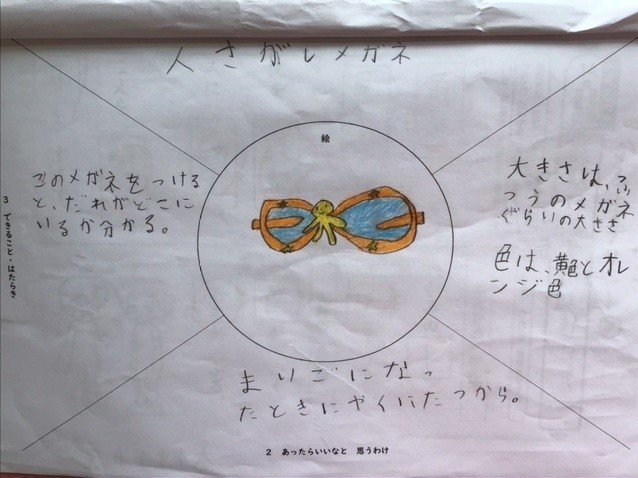 人さがしメガネ
絵
このメガネをつける
と、だれがどこに
いるか分かる。
3 できること・はたらき
大きさは、ふ
つうのメガネ
ぐらいの大きさ
色は、黄色とオレ
ンジ色
まいごになっ
たときにやくにたつから。
2 あったらいいなと 思うわけ